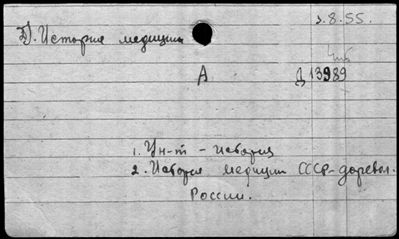 3.8.55.
Д). История медицины
А Д 13989
1. Ун-т - История
2. История медицины СССР-доревол.
России.